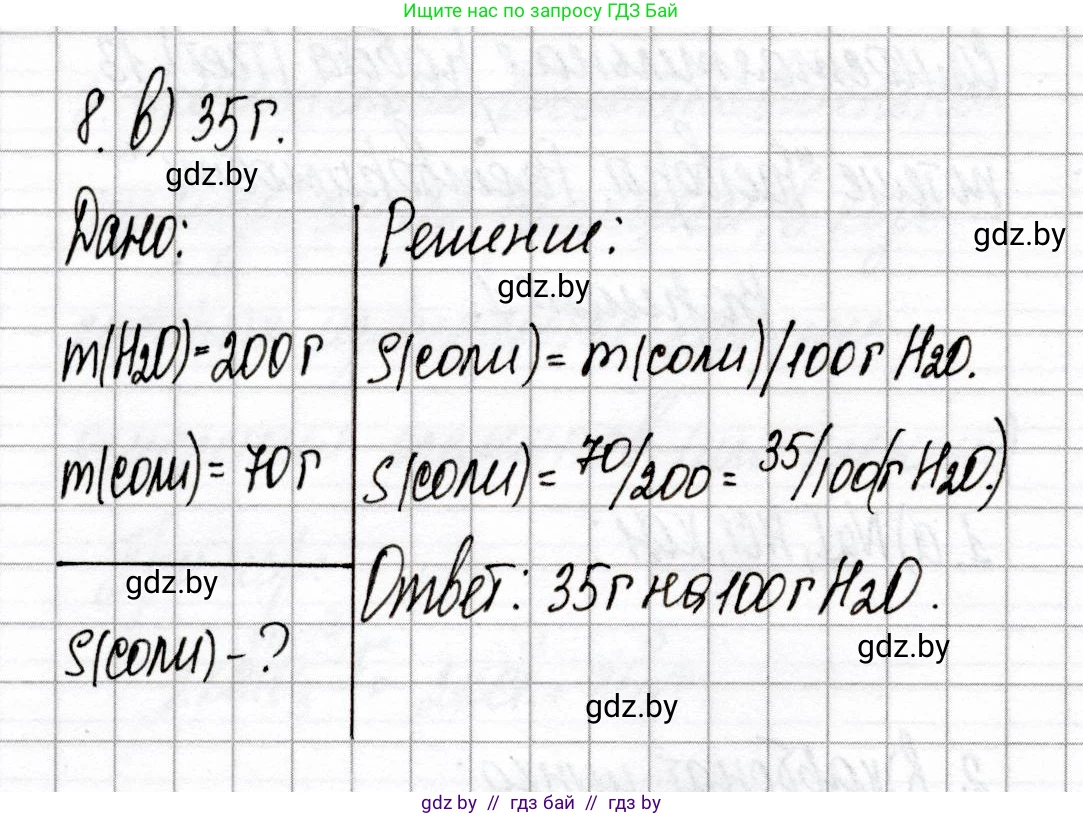 Ищите нас по запросу ГДЗ Бай
8. в) 35 г.
gdz.by
Дано:
Решение:
gdz.by
gdz.by
m(H2O)=200 г
S(соли)= m(соли)/100 г H2O.
m(соли)= 70 г
S(соли)= 70/200 = 35/100(г H2O.)
gdz.by
Ответ: 35 г на 100 г H2O.
gdz.by
S(соли) - ?
gdz.by
gdz by // гдз бай // гдз by